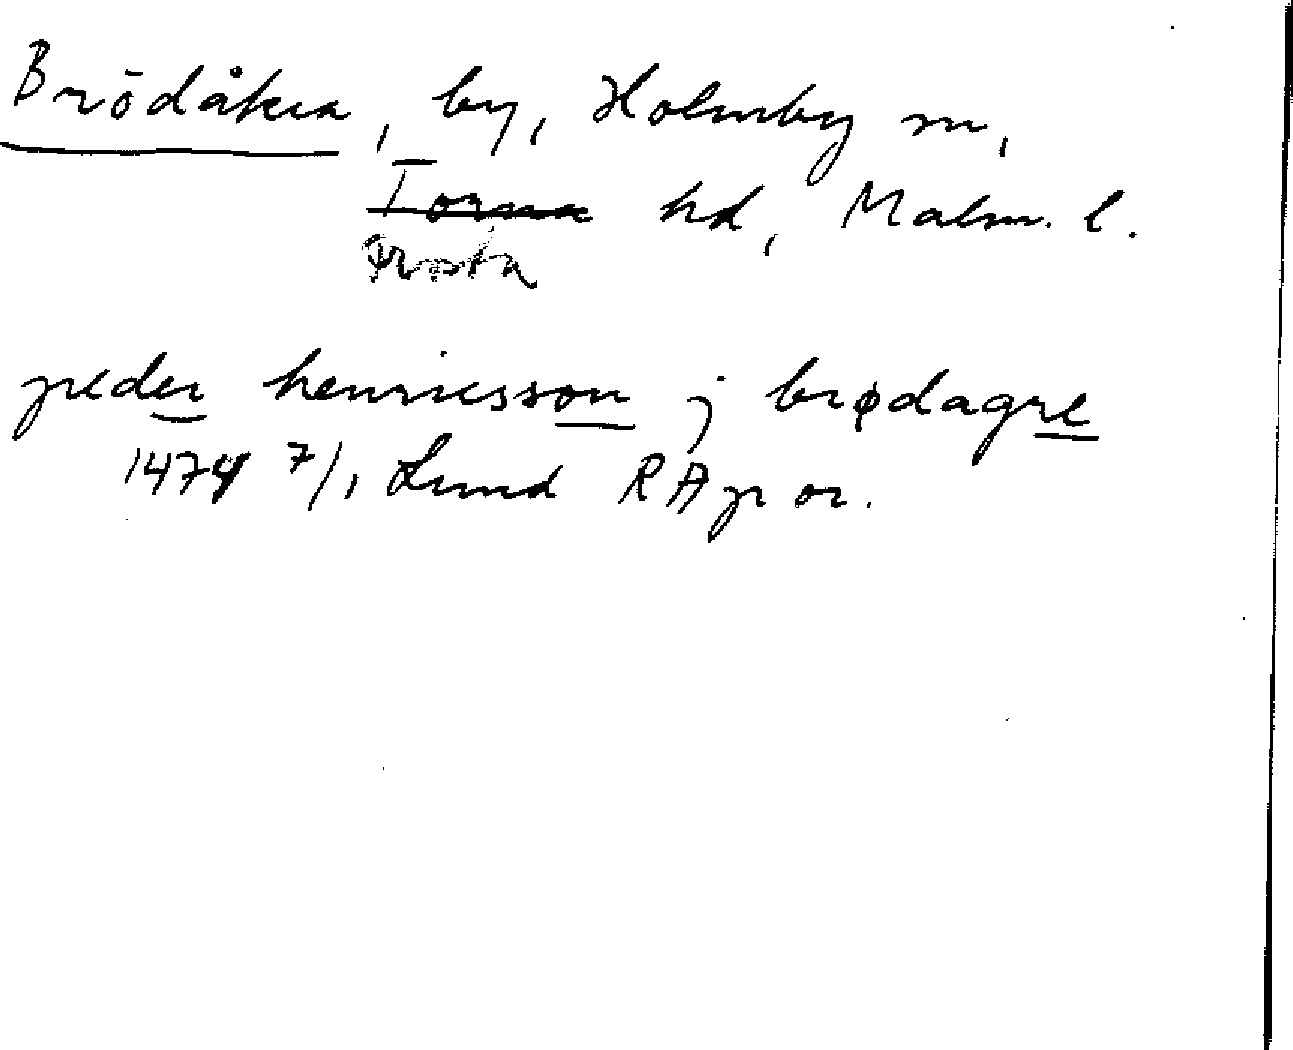 Brödåkra, by, Holmby sn,
Torna hd, Malm. l.
Frosta
peder henricsson j brødagre
1474 7/1 Lund RA p or.